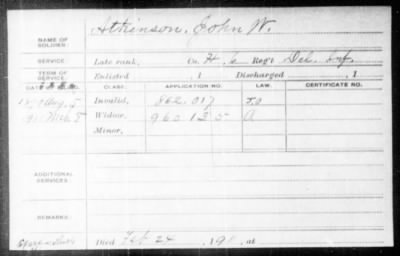 Atkinson, John W.
NAME OF SOLDIER:
SERVICE: Late rank, Co. H, 6 Reg't Del. Inf.
TERM OF SERVICE: Enlisted , 1 Discharged , 1
DATE OF FILING. CLASS. APPLICATION NO. LAW. CERTIFICATE NO.
Aug. 5 Invalid, 862.017
Widow, 960 135 a
Minor,
ADDITIONAL SERVICES:
REMARKS:
Died Feb 24 , 190 , at